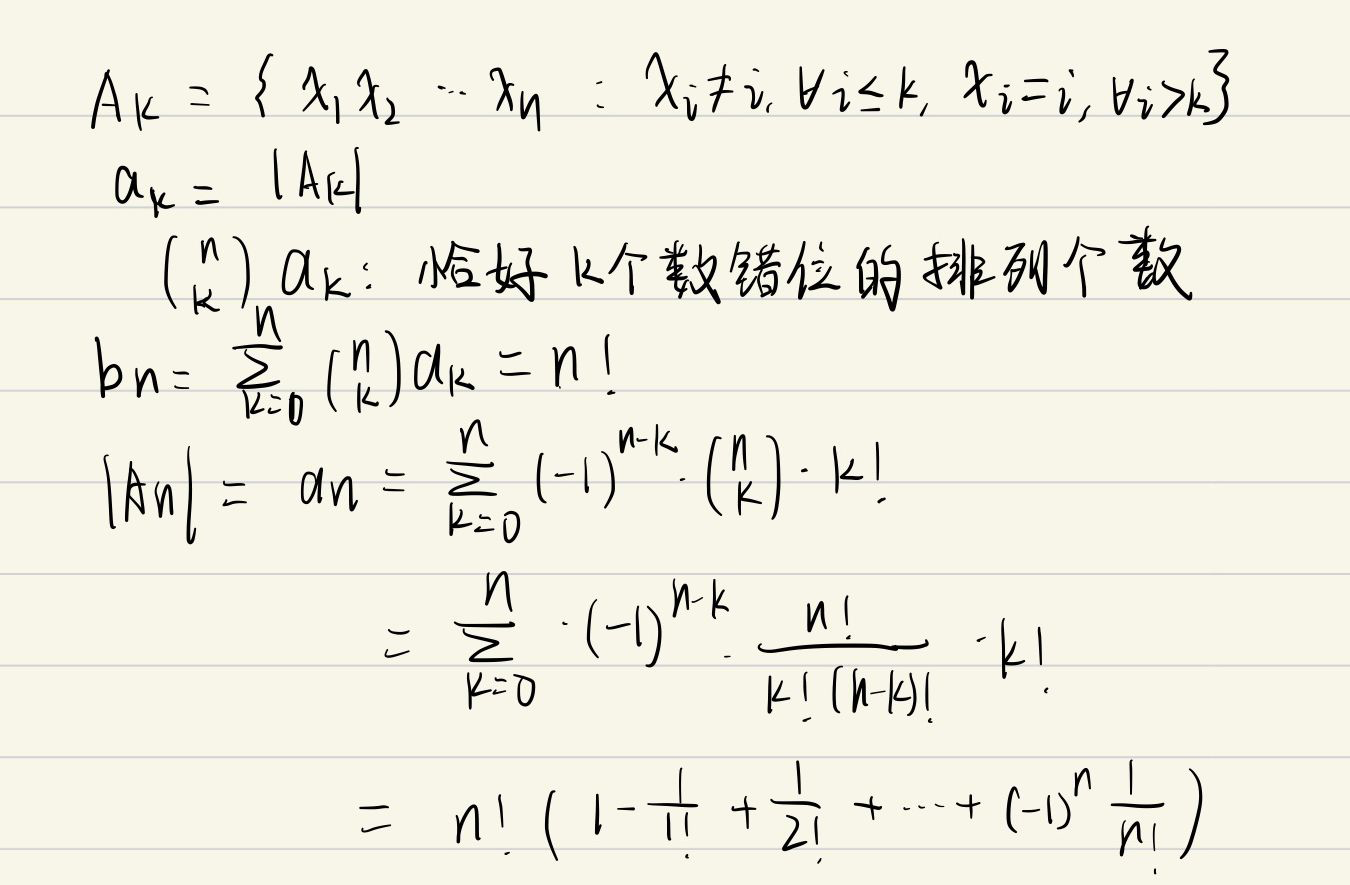 A_k = { x_1 x_2 ⋯ x_n : x_i ≠ i, ∀i ≤ k, x_i = i, ∀i > k }
a_k = |A_k|
\binom{n}{k} a_k : 恰好 k个数错位的排列个数
b_n = \sum_{k=0}^{n} \binom{n}{k} a_k = n!
|A_n| = a_n = \sum_{k=0}^{n} (-1)^{n-k} · \binom{n}{k} · k!
= \sum_{k=0}^{n} · (-1)^{n-k} · \frac{n!}{k!(n-k)!} · k!
= n! ( 1 - \frac{1}{1!} + \frac{1}{2!} + ⋯ + (-1)^n \frac{1}{n!} )